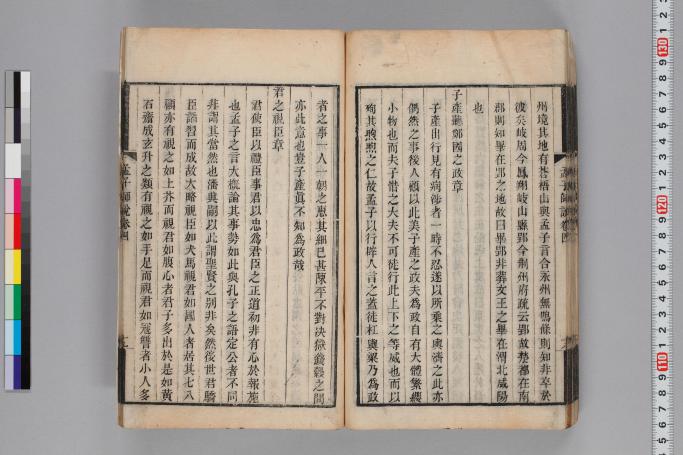 州境其地有蒼梧山與孟子言合永州無鳴條則知非卒於
彼矣岐周今鳳翔岐山縣郢今荆州府疏云郢故楚都在南
郡則知畢在郢之地故曰畢郢非葬文王之畢在渭北咸陽
也
子產聽鄭國之政章
子產出行見有病涉者一時不忍遂以所乘之輿濟之此亦
偶然之事後人顧以此美子產之政夫為政自有大體繁纓
小物也而夫子惜之大夫不可徒行此上下之等威也而以
殉其煦煦之仁故孟子以行辟人言之蓋徒杠輿梁乃為政
者之事一人一朝之惠其細已甚陳平不對決獄錢穀之間
亦此意也豈子產眞不知為政哉
君之視臣章
君使臣以禮臣事君以忠為君臣之正道初非有心於報施
也孟子之言大槪論其事勢如此與孔子之語定公者不同
非謂其當然也潘興嗣以此謂聖賢之別非矣然後世君驕
臣諂習而成故大略視臣如犬馬視君如國人者居其七八
顧亦有視之如土芥而視君如腹心者君子多出於是如黃
石齋成玄升之類有視之如手足而視君如寇讐者小人多
孟子師說卷四
孟子師說卷四